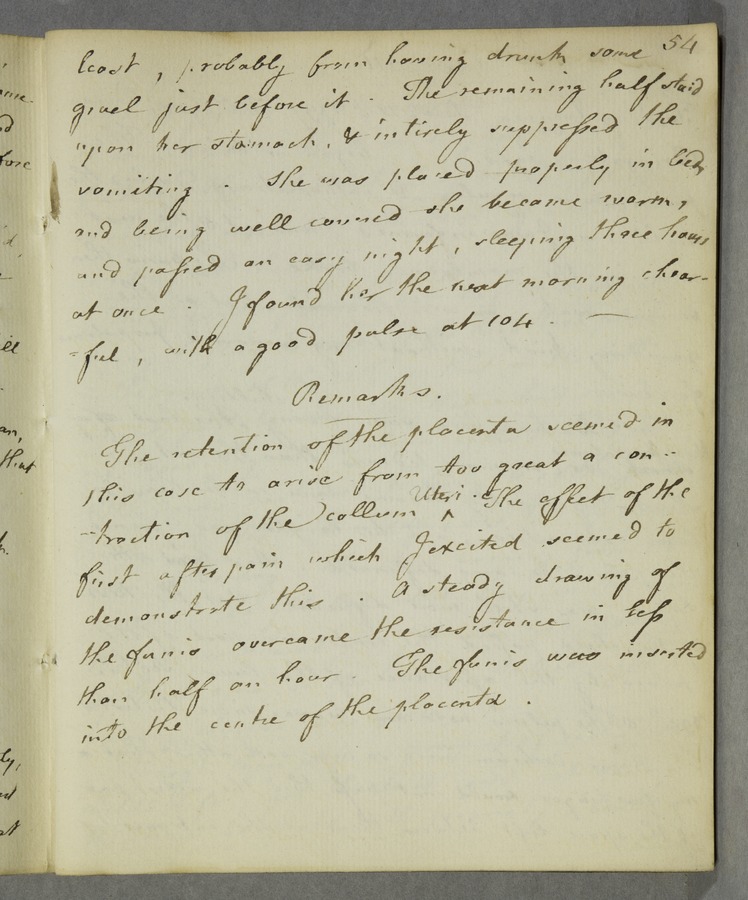 54
least, probably from having drunk some
gruel just before it. The remaining half staid
upon her stomach, & intirely suppressed the
vomiting. She was placed properly in bed,
and being well covered she became warm,
and passed an easy night, sleeping three hours
at once. I found her the next morning chear-
-ful, with a good pulse at 104. —
Remarks.
The retention of the placenta seemed in
this case to arise from too great a con-
-traction of the collum Uteri. The effect of the
first after pain which I excited seemed to
demonstrate this. A steady drawing of
the funis overcame the resistance in less
than half an hour. The funis was inserted
into the centre of the placenta.